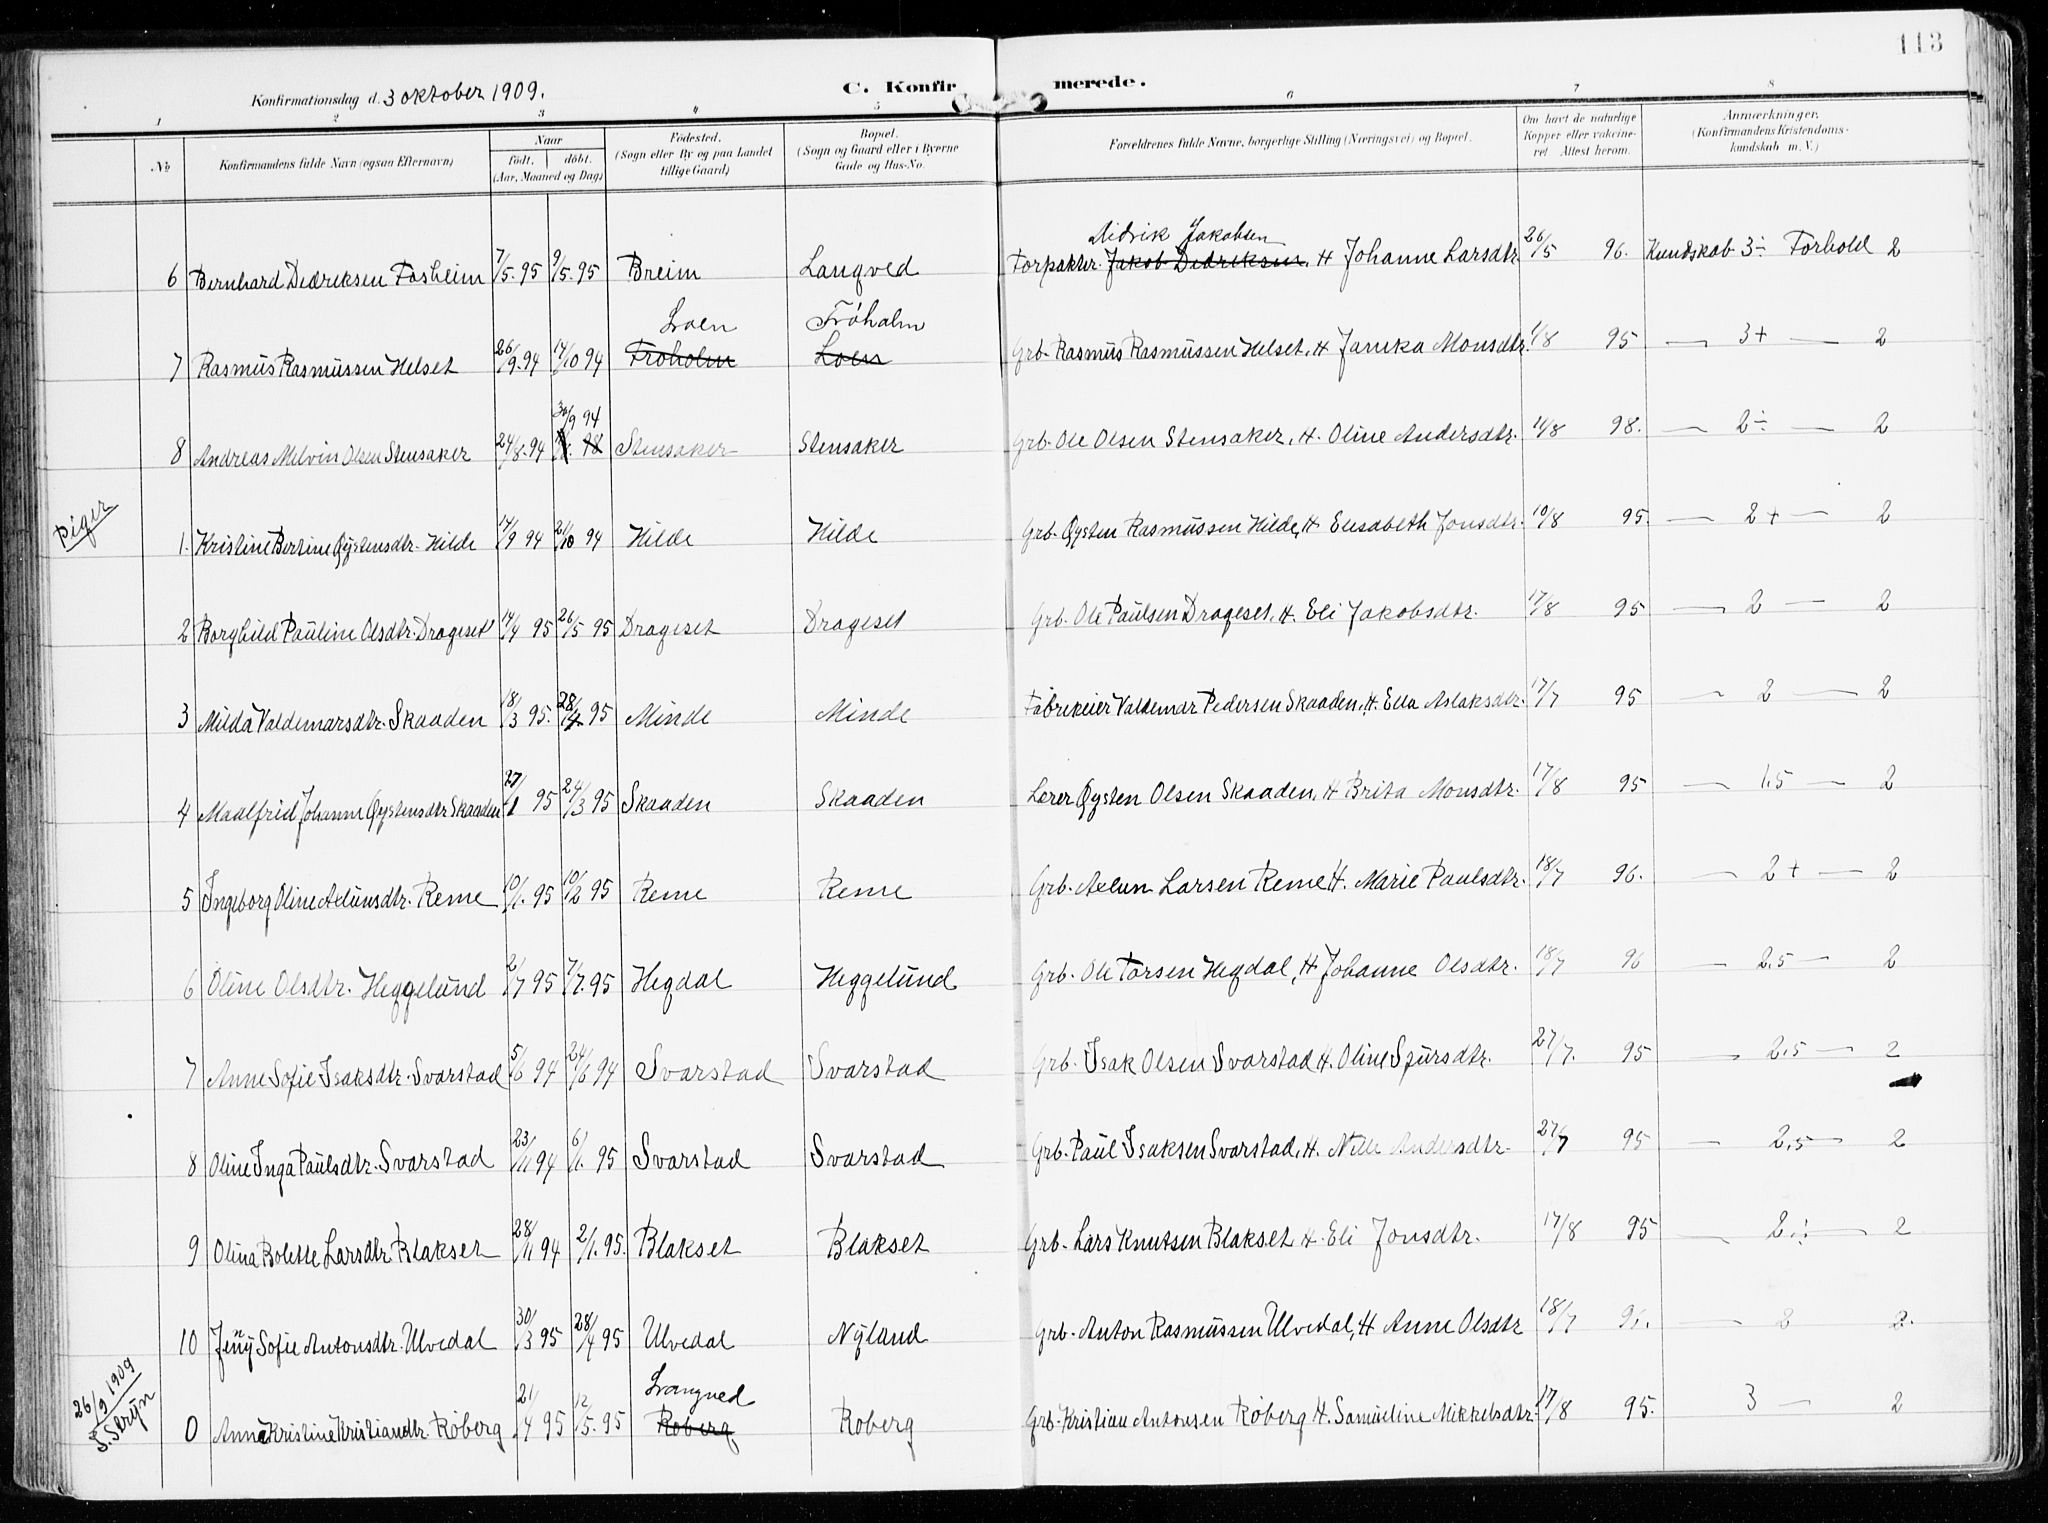 113
Konfirmationsdag d. 3 oktober 1909.
C. Konfirmerede.
1 2 3 4 5 6 7 8
No
Konfirmandens fulde Navn (ogsaa Efternavn)
Naar
födt. döbt.
(Aar, Maaned og Dag)
Födested.
(Sogn eller By og paa Landet
tillige Gaard)
Bopæl.
(Sogn og Gaard eller i Byerne
Gade og Hus-No.
Forældrenes fulde Navne, borgerlige Stilling (Næringsvei) og Bopæl.
Om havt de naturlige
Kopper eller vakcine-
ret Attest herom.
Anmærkninger.
(Konfirmandens Kristendoms-
kundskab m. V.)
Didrik Jakobsen
6 Bernhard Dedriksen Fosheim 7/5. 95 9/5. 95 Breim Langved Forpakter Jakob Dedriksen, H Johanne Larsdtr. 26/5 96. Kundskab 3÷ Forhold 2
Loen Tröholm
7 Rasmus Rasmussen Helset 26/9. 94 14/10 94 Troholm Loen Grb. Rasmus Rasmussen Helset, H Jamka Monsdtr. 1/8 95 — 3+ — 2
30/9 94
8 Andreas Melvin Olsen Stensaker 24/8. 94 Stensaker Stensaker Grb. Ole Olsen Stensaker, H. Oline Andersdtr. 14/8 98. — 2÷ — 2
Piger
1. Kristine Bertine Øystensdtr. Hilde 14/9 94 21/10 94 Hilde Hilde Grb. Øysten Rasmussen Hilde, H Elisabeth Jonsdtr. 10/8 95. — 2+ — 2
2 Borghild Pauline Olsdtr. Drageset 14/4 95 26/5 95 Drageset Drageset Grb. Ole Paulsen Drageset, H. Eli Jakobsdtr. 17/8 95 — 2 — 2
3 Milda Valdemarsdtr. Skaaden 18/3 95. 28/4 95 Minde Minde Fabrikeier Valdemar Pedersen Skaaden, H. Ella Aslaksdtr. 17/7 95 — 2 — 2
4 Maalfrid Johanne Øystensdtr Skaaden 27/1 95 24/3 95 Skaaden Skaaden Lærer Øysten Olsen Skaaden, H Brita Monsdtr. 17/8 95 — 1,5 — 2
5 Ingeborg Oline Aelunsdtr. Reme 10/1. 95 10/2 95 Reme Reme Grb. Aelun Larsen Reme, H. Marie Paulsdtr. 18/7 96. — 2+ — 2
6 Oline Olsdtr. Heggelund 2/7 95 7/7. 95 Hegdal Heggelund Grb. Ole Torsen Hegdal, H Johanne Olsdtr. 18/7 96 — 2,5 — 2
7 Anne Sofie Isaksdtr. Svarstad 5/6 94 24/6 94 Svarstad Svarstad Grb. Isak Olsen Svarstad H. Oline Sjursdtr. 27/7. 95 — 2,5 — 2
8 Oline Inga Paulsdtr. Svarstad 23/11 94 6/1. 95 Svarstad Svarstad Grb. Paul Isaksen Svarstad, H. Nille Andersdtr. 27/7 95 — 2,5 — 2
9 Olina Bolette Larsdtr. Blakset 28/11 94 2/1. 95. Blakset Blakset Grb. Lars Knutsen Blakset H. Eli Jonsdtr. 17/8 95 — 2÷ — 2
10 Jenny Sofie Antonsdtr. Ulvedal 30/3 95 28/4 95 Ulvedal Nyland Grb. Anton Rasmussen Ulvedal, H Anne Olsdtr 18/7 96. — 2 2.
26/9 1909
S. Stryn
Langved
0 Anna Kristine Kristiandtr. Röberg 21/4 95 12/5. 95 Roberg Roberg Grb. Kristian Antonsen Röberg H. Samueline Mikkelsdtr. 17/8 95. 3 — 2